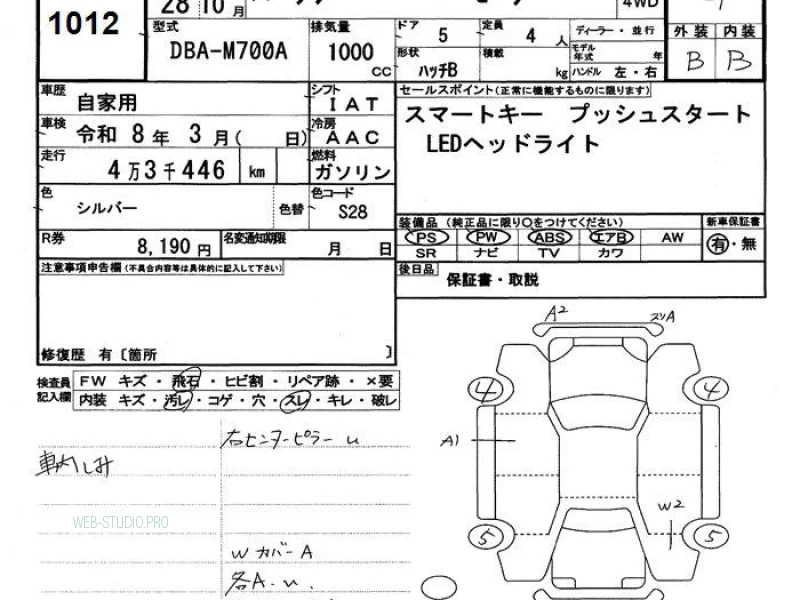 28 10 月
4WD
1012
型式
DBA-M700A
排気量
1000
CC
ドア
5
定員
4 人
形状
ハッチB
積載
kg
ディーラー・並行
モデル年式 年
ハンドル 左・右
外装 内装
B B
車歴
自家用
シフト
IAT
車検
令和 8 年 3 月( 日)
冷房
AAC
走行
4 万 3 千 446 km
燃料
ガソリン
色
シルバー
色替
色コード
S28
R券
8,190 円
名変通知期限
月 日
セールスポイント(正常に機能するものに限ります)
スマートキー プッシュスタート
LEDヘッドライト
装備品(純正品に限り○をつけてください)
新車保証書
PS PW ABS エアB AW
有・無
SR ナビ TV カワ
後日品
保証書・取説
注意事項申告欄(不具合内容等は具体的に記入して下さい)
修復歴 有〔箇所 〕
検査員記入欄
FW キズ・飛石・ヒビ割・リペア跡・×要
内装 キズ・汚レ・コゲ・穴・スレ・キレ・破レ
右センターピラー u
車内しみ
WEB-STUDIO.PRO
Wカバー A
各A.u.
A2
スリA
4
4
A1
W2
5
5